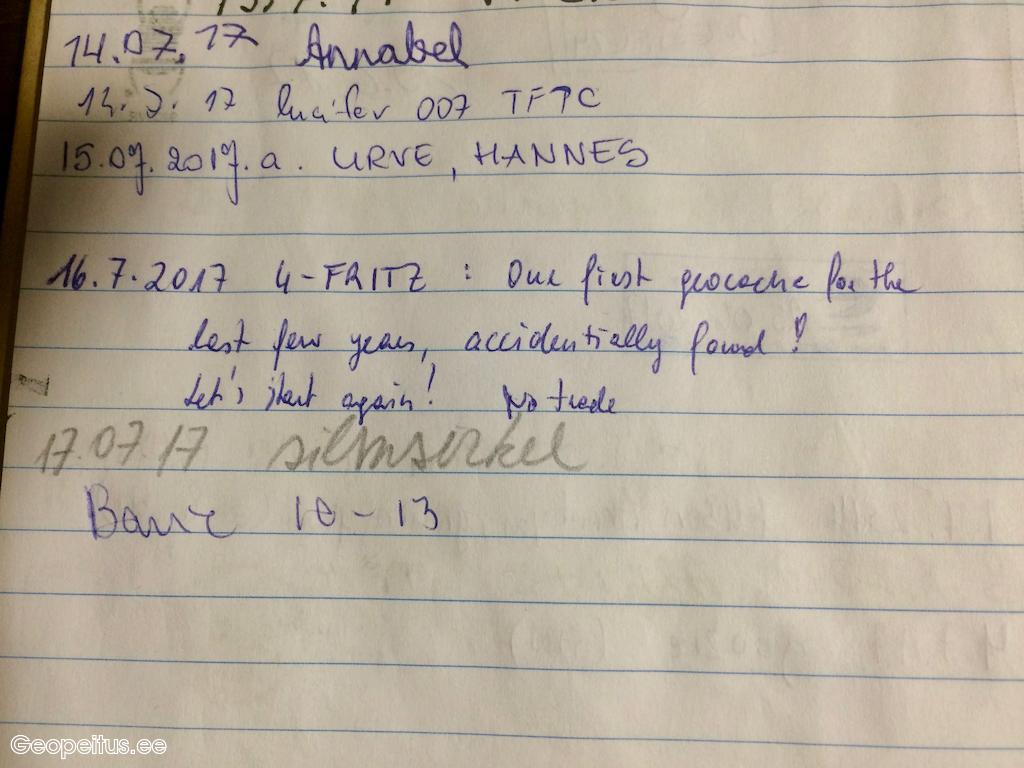 14.07.17 Annabel
14.7.17 lucifer 007 TFTC
15.07.2017.a. URVE, HANNES
16.7.2017 4-FRITZ : Our first geocache for the
last few years, accidentially found!
Let's start again! No trade
17.07.17 silmsirkel
10-13
Geopeitus.ee